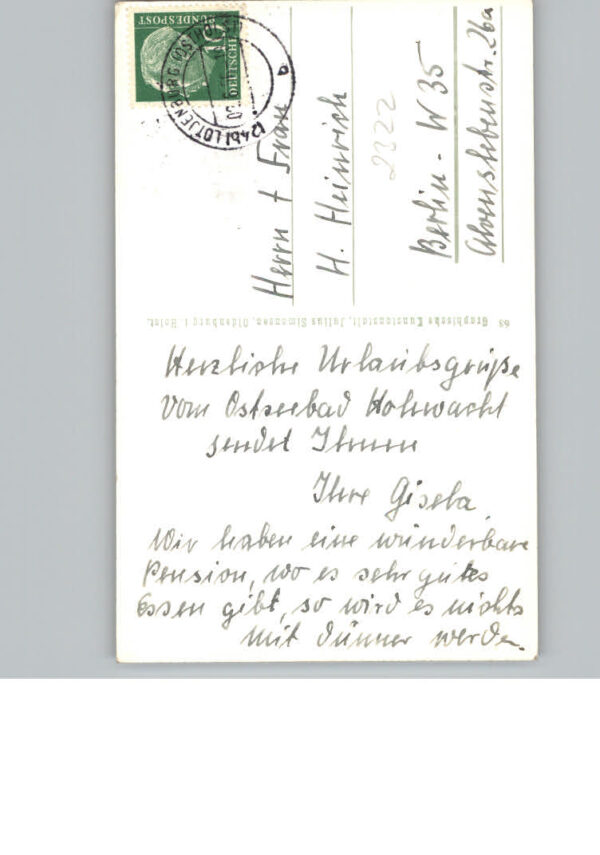 DEUTSCHE
BUNDESPOST
10
(24b) LÜTJENBURG (OSTHOLST)
a
Herrn + Frau
H. Heinrich
2322
Berlin - W 35
Alvenslebenstr. 26a
68 Graphische Kunstanstalt, Julius Simonsen, Oldenburg i. Holst.
Herzliche Urlaubsgrüße
vom Ostseebad Hohwacht
sendet Ihnen
Ihre Gisela
Wir haben eine wunderbare
Pension, wo es sehr gutes
Essen gibt, so wird es nichts
mit dünner werden.